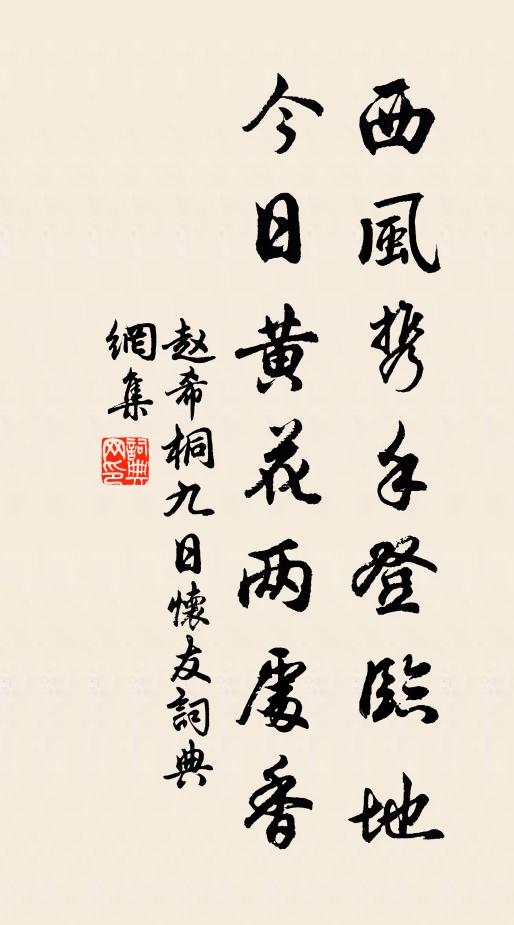 西風携手登臨地
今日黄花两處香
赵希桐九日懷友詞典
網集
詞典
网印